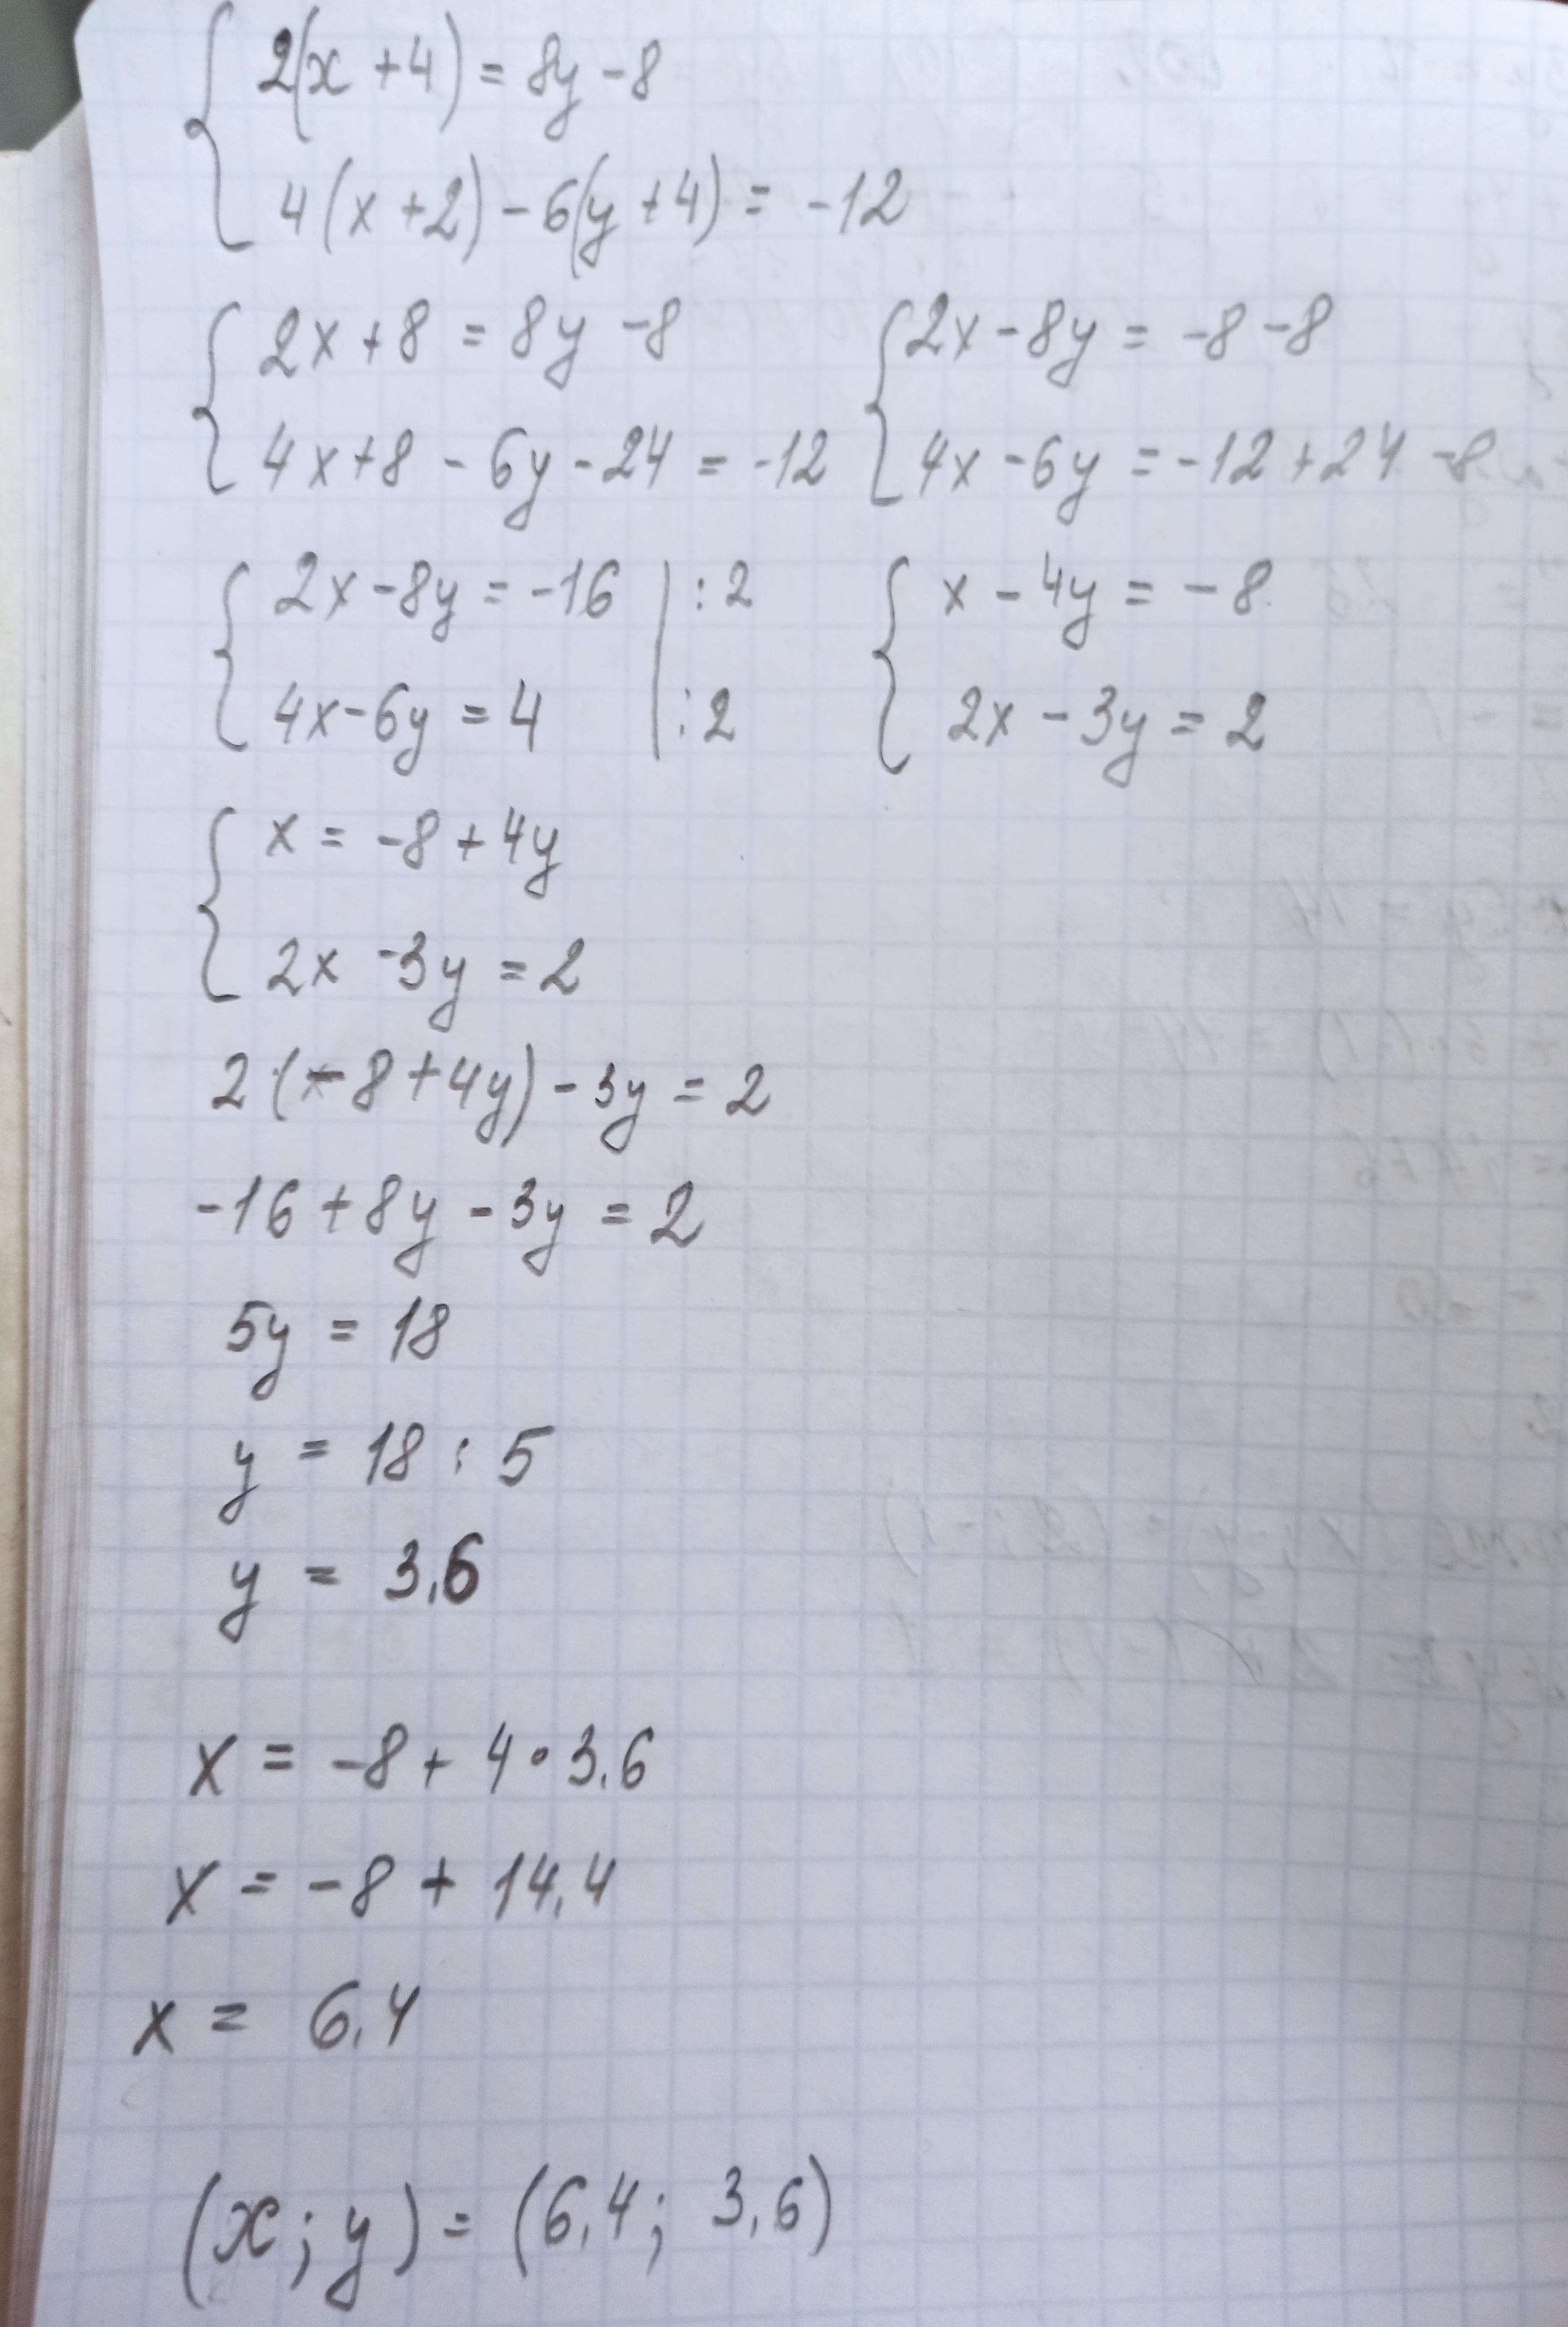 2(x+4) = 8y - 8
4(x+2) - 6(y+4) = -12
2x + 8 = 8y - 8
4x + 8 - 6y - 24 = -12
2x - 8y = -8 - 8
4x - 6y = -12 + 24 - 8
2x - 8y = -16 | : 2
4x - 6y = 4 | : 2
x - 4y = -8
2x - 3y = 2
x = -8 + 4y
2x - 3y = 2
2(-8 + 4y) - 3y = 2
-16 + 8y - 3y = 2
5y = 18
y = 18 : 5
y = 3.6
x = -8 + 4 · 3.6
x = -8 + 14.4
x = 6.4
(x; y) = (6.4; 3.6)